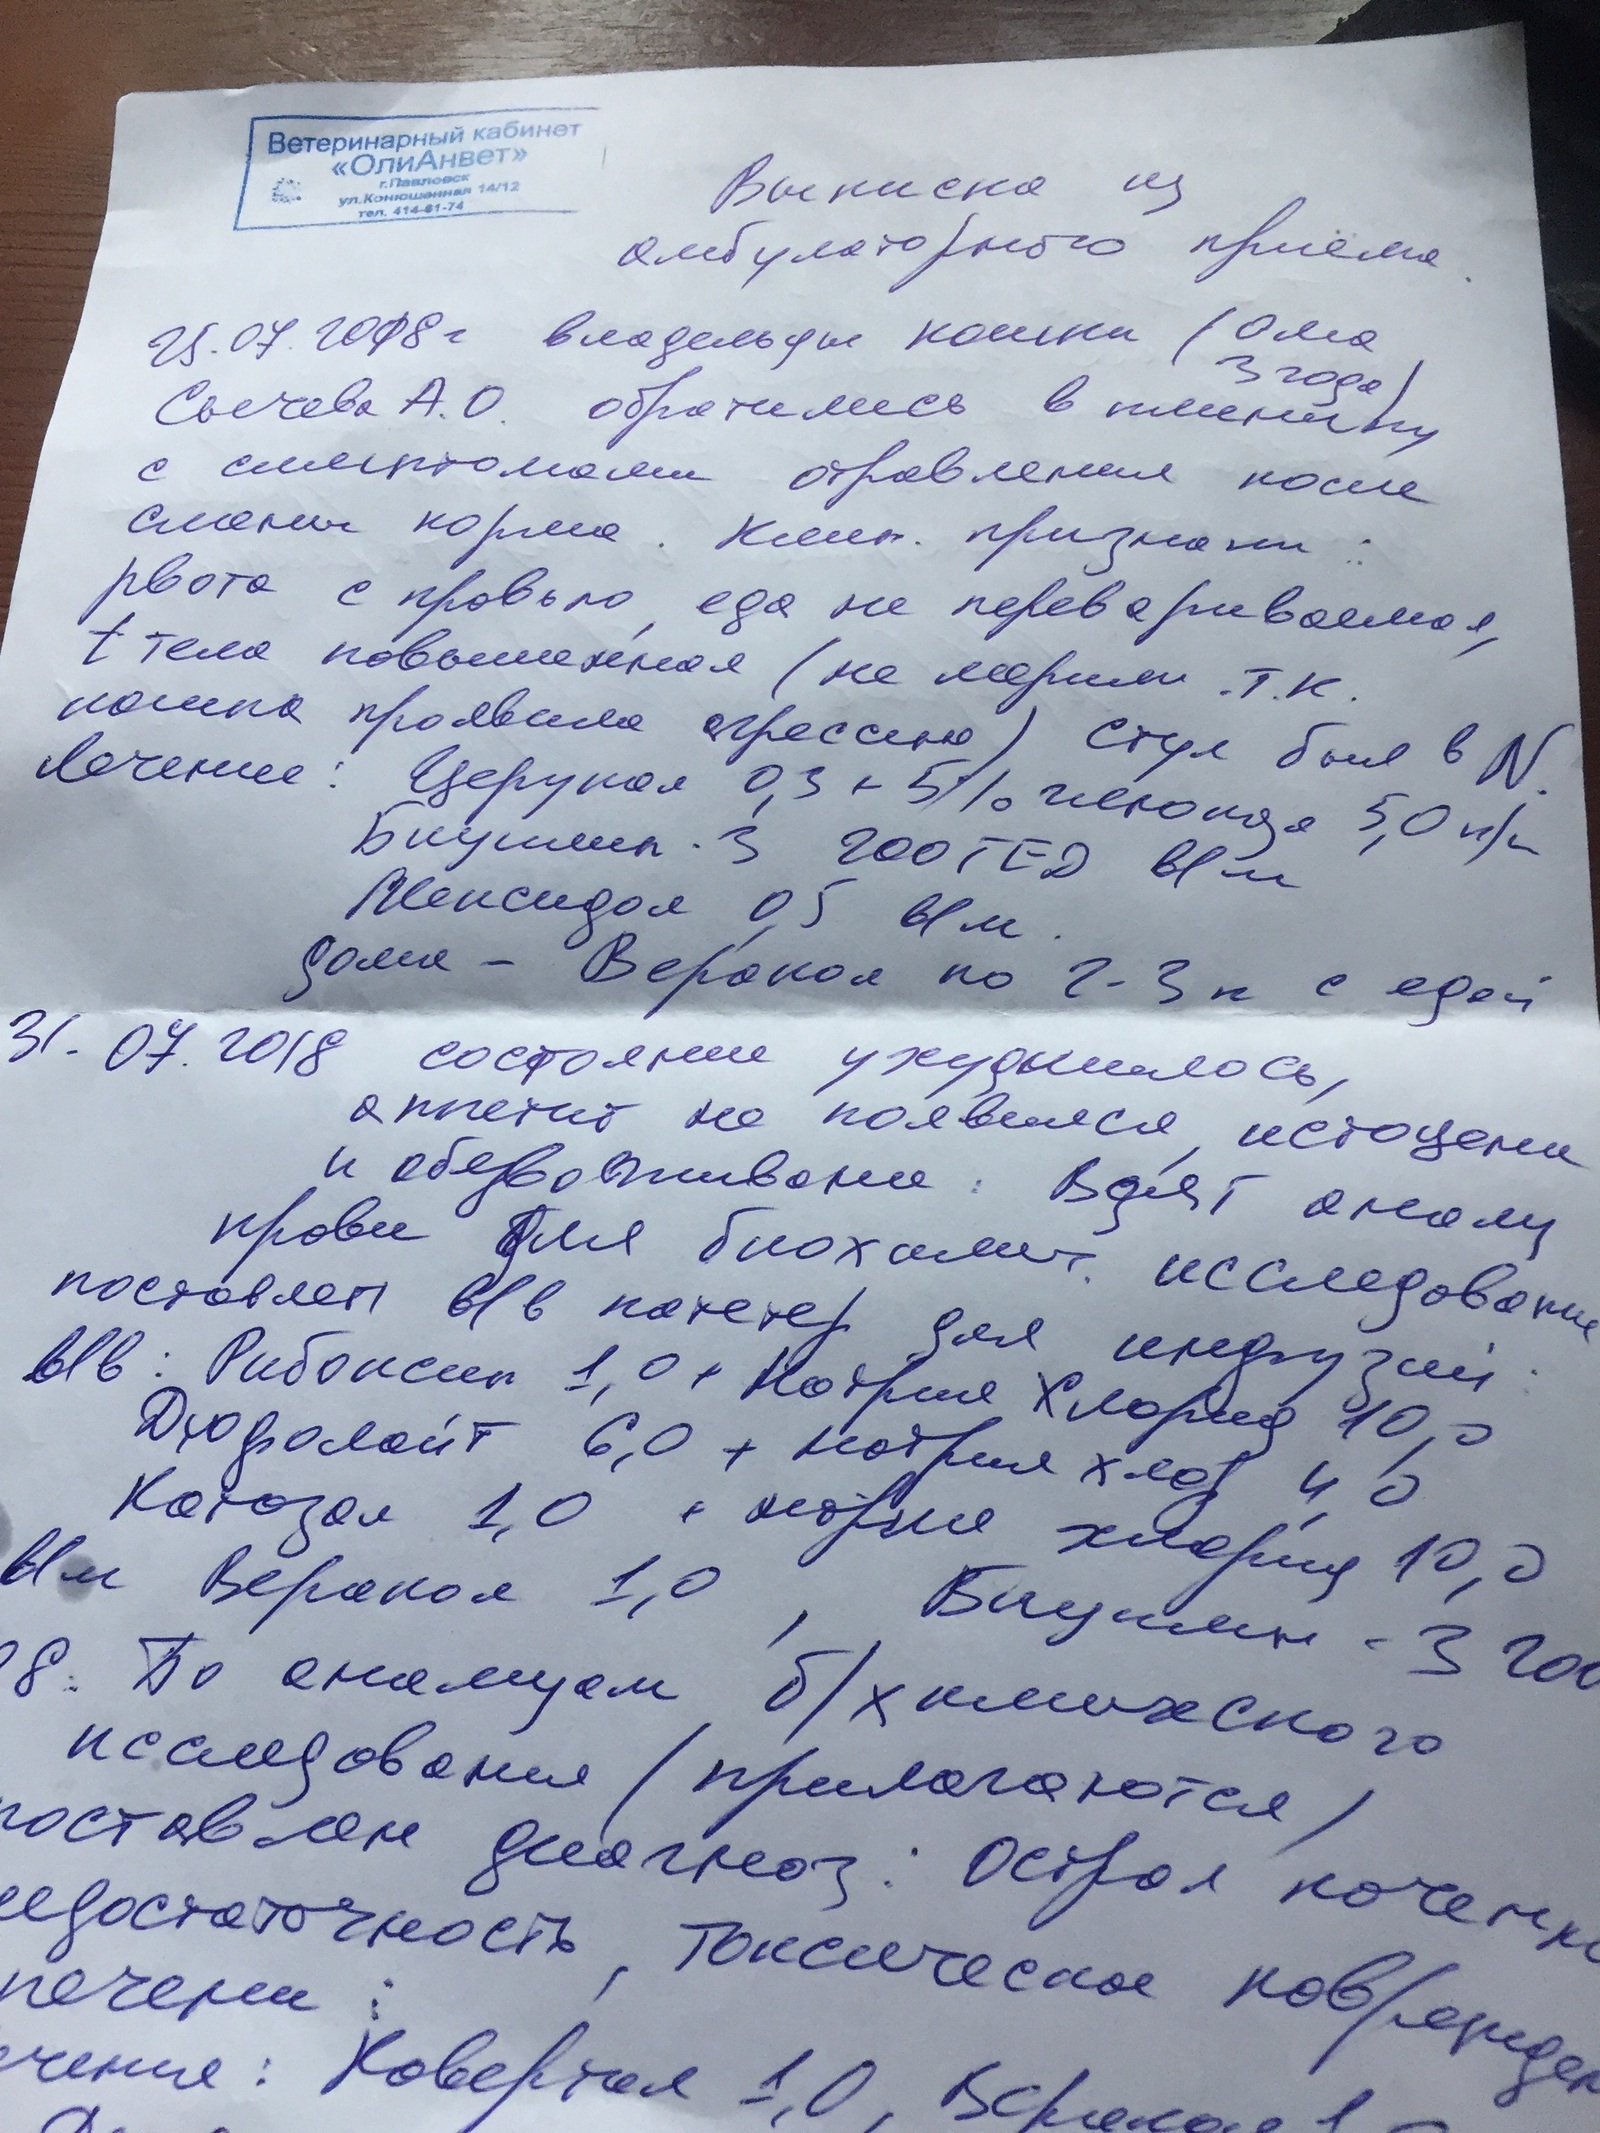 Ветеринарный кабинет
«ОлиАнвет»
г.Павловск
ул.Конюшенная 14/12
тел. 414-81-74
Выписка из
амбулаторного приёма.
25.07.2018г владельцы кошки (
3 года)
Сычева А.О. обратились в клинику
с симптомами отравления после
смены корма. Клин. признаки:
рвота с кровью, еда не перевариваемая,
t тела повышенная (не мерили т.к.
кошка проявила агрессию) Стул был в N.
Лечение: Церукал 0,3 + 5% глюкоза 5,0 п/к
Бициллин-3 200 ТЕД в/м
Мексидол 0,5 в/м.
дома - Веракол по 2-3 к с едой
31.07.2018 состояние ухудшилось,
аппетит не появился, истощение
и обезвоживание. Взят анализ
крови для биохимич. исследование
поставлен в/в катетер для инфузий:
в/в: Рибоксин 1,0 + Натрия хлорид 10,0
Дюфолайт 6,0 + натрия хлор 4,0
Катозал 1,0 + натрия хлорид 10,0
в/м Веракол 1,0, Бициллин-3 200
8. По анализам б/химического
исследования (прилагаются)
поставлен диагноз: Острая почечн
недостаточность, токсическое поврежден
печени:
ечение: Ковертал 1,0, Веракол 1